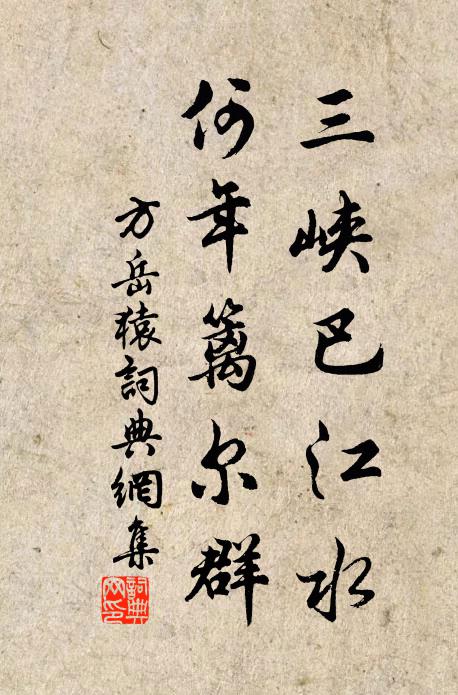 三峽巴江水
何年篱尔群
方岳猿詞典網集
詞典
网印